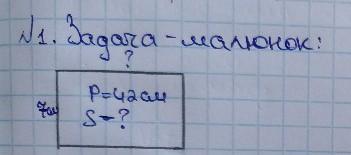 №1. Задача-малюнок:
?
P=42см
7см
S-?